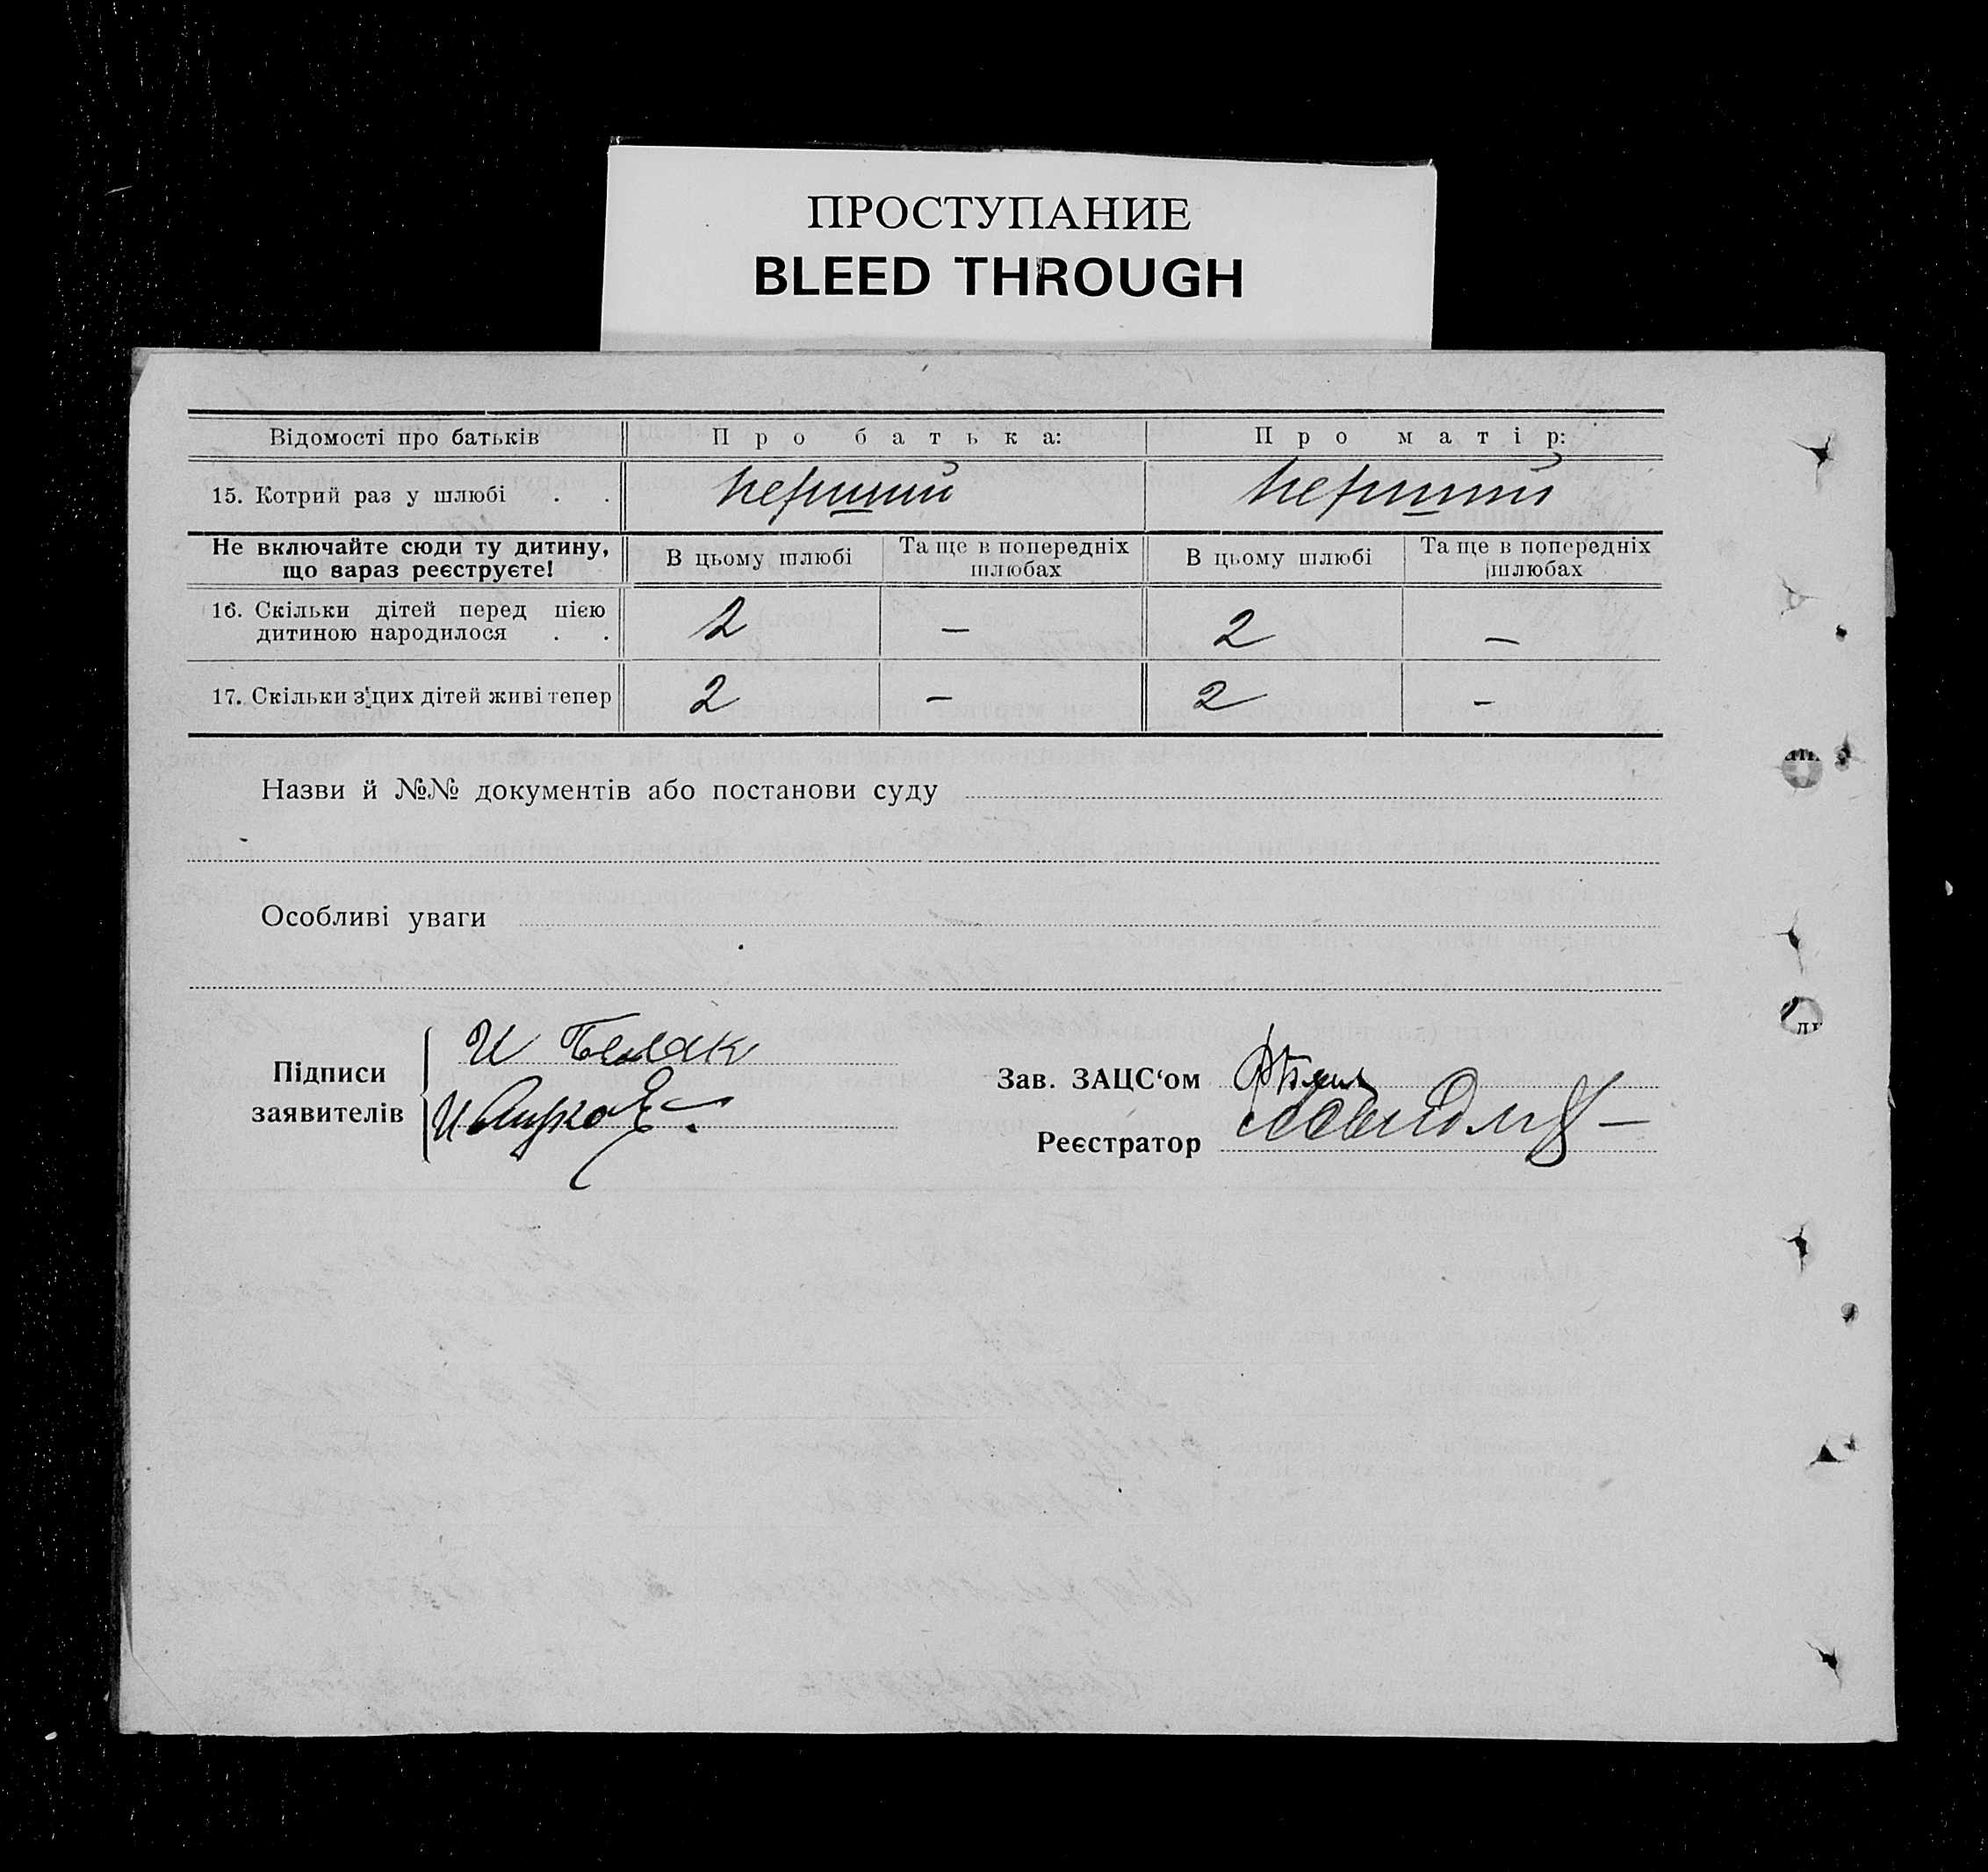 ПРОСТУПАНИЕ
BLEED THROUGH
Відомості про батьків Про батька: Про матір:
15. Котрий раз у шлюбі . . перший перший
Не включайте сюди ту дитину, що вараз реєструєте! В цьому шлюбі Та ще в попередніх шлюбах В цьому шлюбі Та ще в попередніх шлюбах
16. Скільки дітей перед цією
дитиною народилося . . 2 — 2 —
17. Скільки з цих дітей живі тепер 2 — 2 —
Назви й №№ документів або постанови суду
Особливі уваги
Підписи
заявителів
И Беляк
Зав. ЗАЦС‘ом
Реєстратор